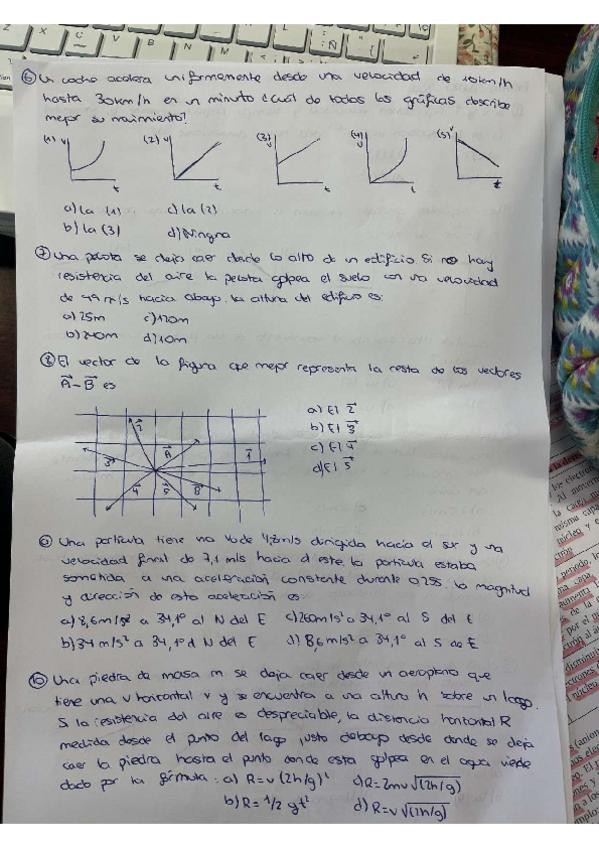 6) Un coche acelera uniformemente desde una velocidad de 10km/h
hasta 30km/h en un minuto ¿cuál de todos las gráficas describe
mejor su movimiento?
(1) v t (2) v t (3) v t (4) v t (5) v t
a) La (1) c) La (2)
b) La (3) d) Ninguna
7) Una pelota se deja caer desde lo alto de un edificio si no hay
resistencia del aire la pelota golpea el suelo con una velocidad
de 49 m/s hacia abajo. la altura del edificio es:
a) 25m c) 120m
b) 240m d) 10m
8) El vector de la figura que mejor representa la resta de los vectores
A - B es
a) El 2
b) El 3
c) El 4
d) El 5
2 A 1
3
4 5 B
9) Una partícula tiene na vo de 4,8m/s dirigida hacia el sur y una
velocidad final de 7,1 m/s hacia el este. la partícula estaba
sometida a una aceleración constante durante 0,25s. La magnitud
y dirección de esta aceleración es:
a) 8,6m/s² a 34,1º al N del E c) 260m/s² a 34,1º al S del E
b) 34 m/s² a 34,1º d N del E d) 8,6m/s² a 34,1º al S de E
10) Una piedra de masa m se deja caer desde un aeroplano que
tiene una v horizontal v y se encuentra a una altura h sobre un lago.
Si la resistencia del aire es despreciable, la distancia horizontal R
medida desde el punto del lago justo debajo desde donde se deja
caer la piedra hasta el punto donde esta golpea en el agua viene
dado por la fórmula: a) R=v(2h/g)² c) R=2mv√(2h/g)
b) R=1/2 gt² d) R=v√(2h/g)